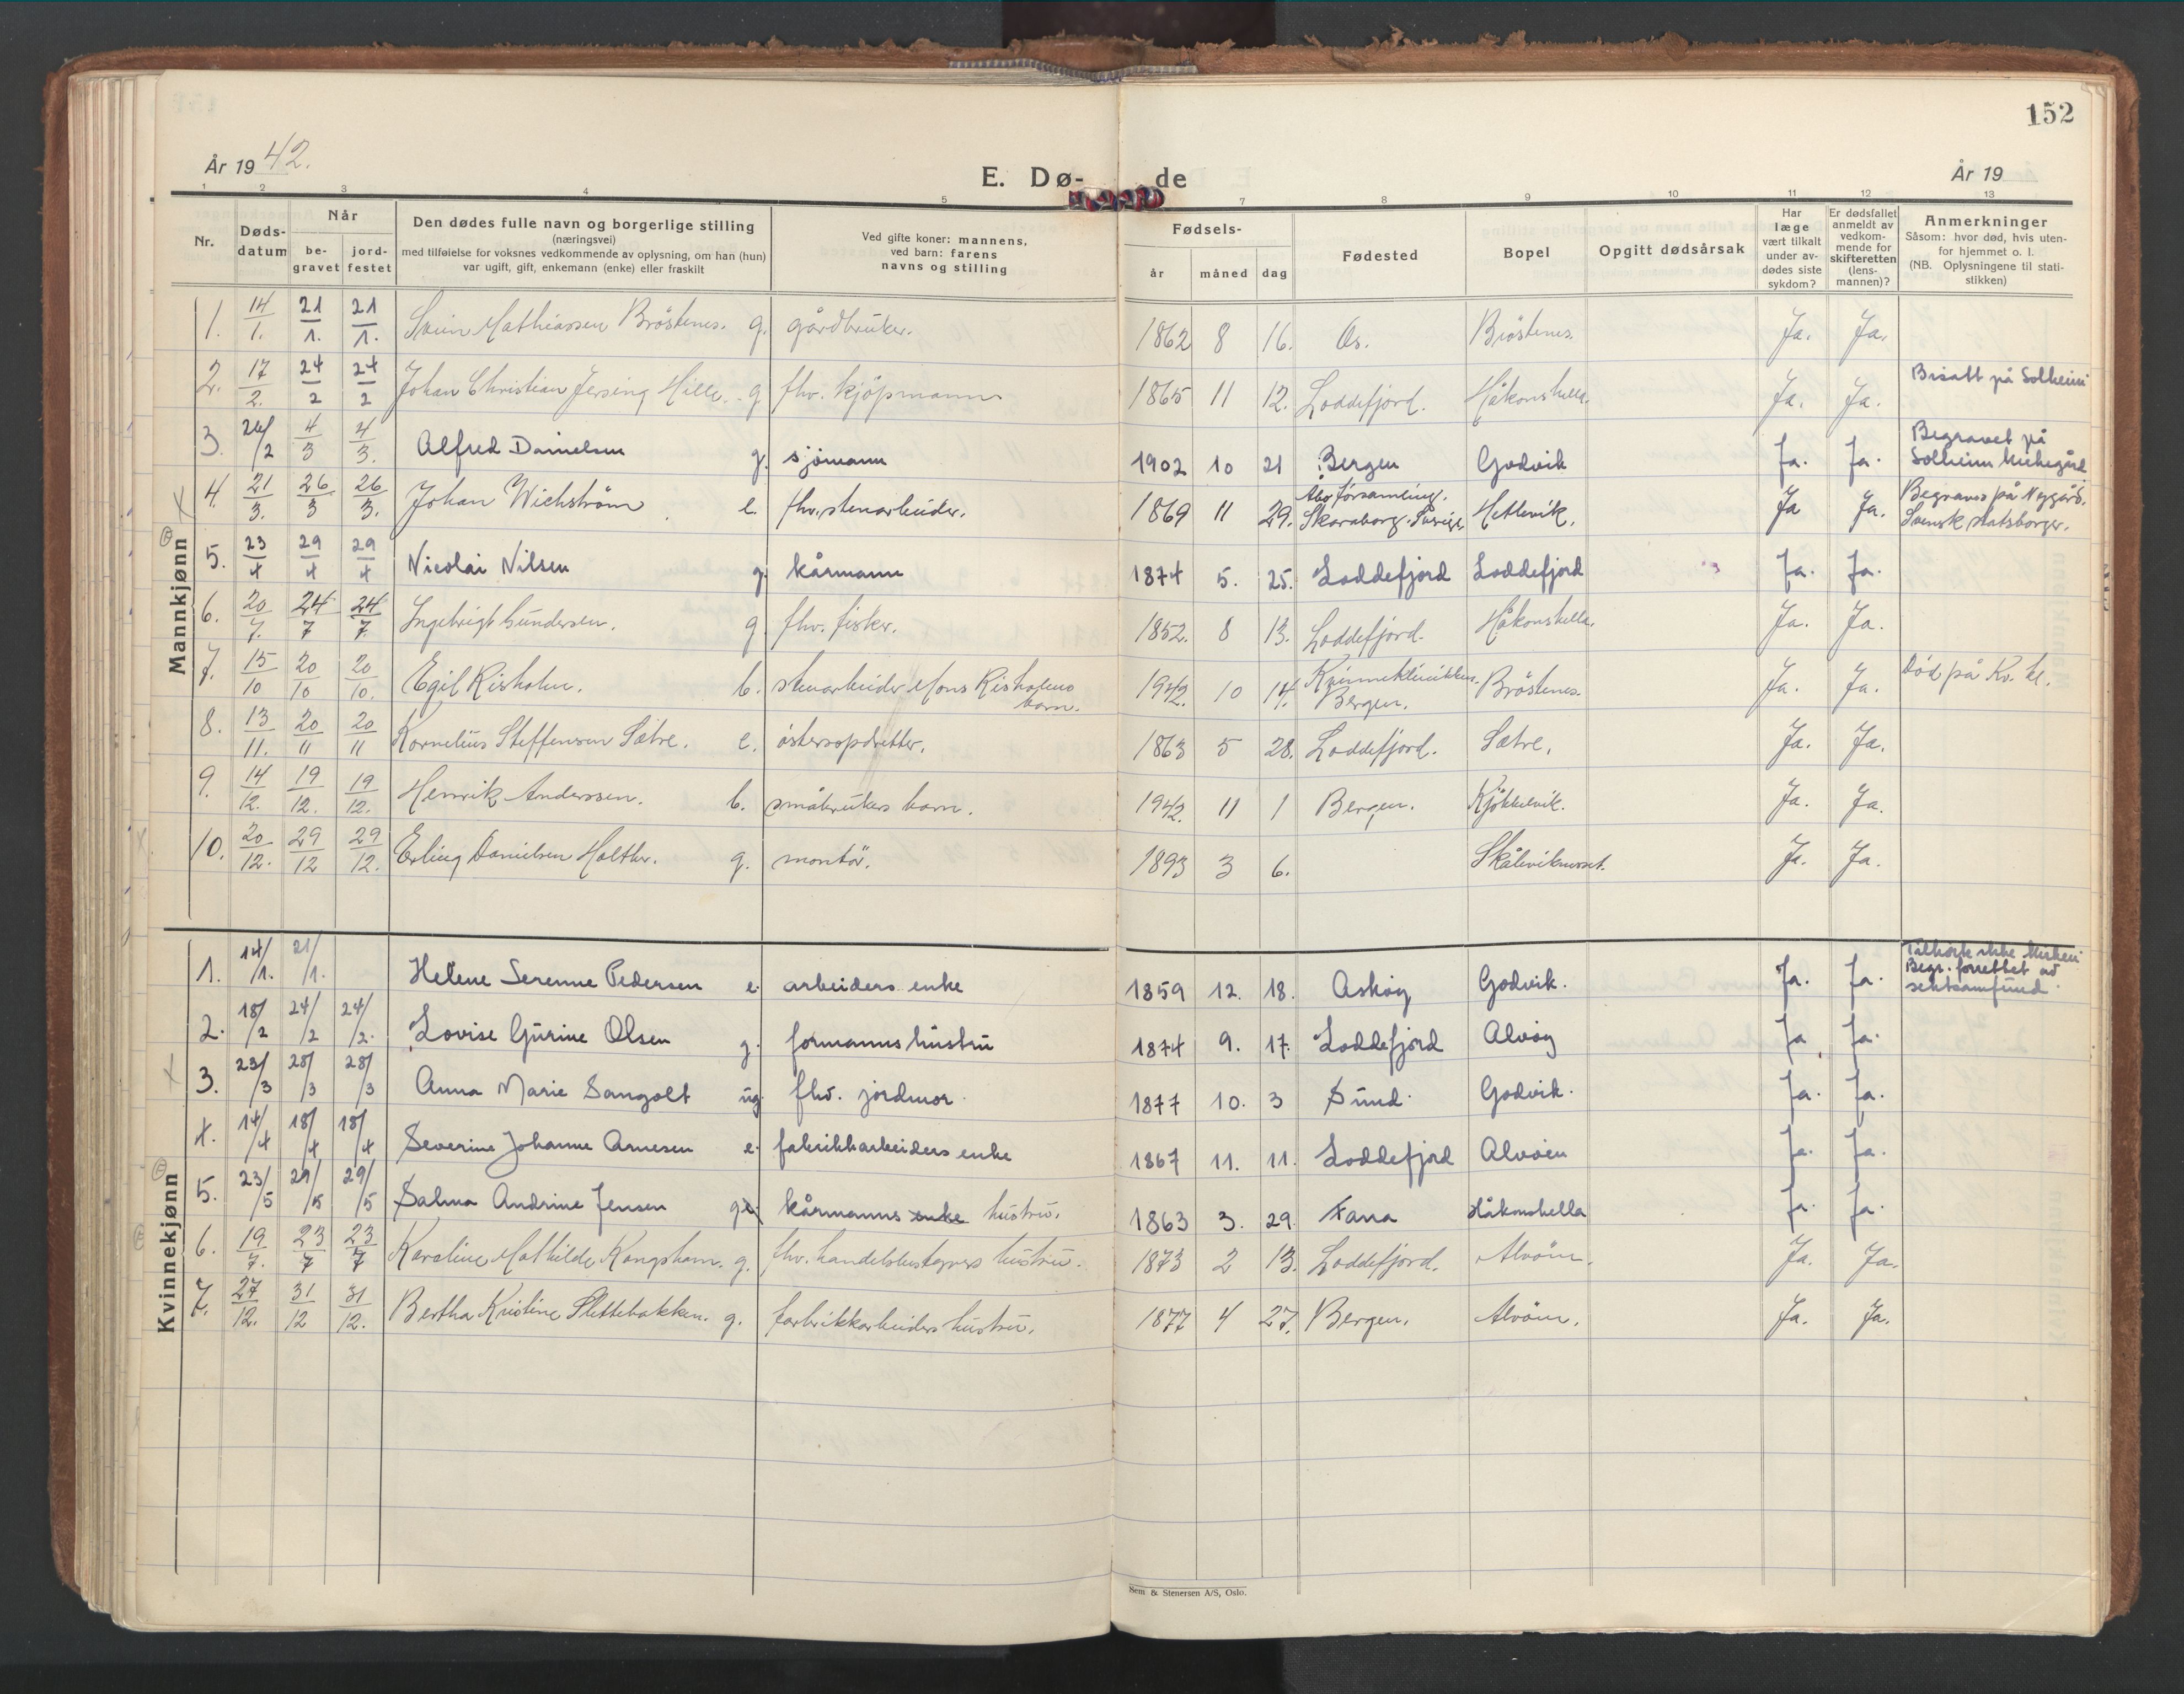 152
År 1942.
E. Dø-
de
År 19
1 2 3 4 5 7 8 9 10 11 12 13
Nr.
Døds-
datum
Når
be-
gravet
jord-
festet
Den dødes fulle navn og borgerlige stilling
(næringsvei)
med tilføielse for voksnes vedkommende av oplysning, om han (hun)
var ugift, gift, enkemann (enke) eller fraskilt
Ved gifte koner: mannens,
ved barn: farens
navns og stilling
Fødsels-
år måned dag
Fødested
Bopel
Opgitt dødsårsak
Har
læge
vært tilkalt
under av-
dødes siste
sykdom?
Er dødsfallet
anmeldt av
vedkom-
mende for
skifteretten
(lens-
mannen)?
Anmerkninger
Såsom: hvor død, hvis uten-
for hjemmet o. l.
(NB. Oplysningene til stati-
stikken)
Mannkjønn
1. 14/1. 21/1. 21/1. Svein Mathiassen Bröstenes. g. gårdbruker. 1862 8 16. Os. Bröstenes. Ja. Ja.
2. 17/2. 24/2 24/2 Johan Christian Jersing Hille. g fhv. kjöpmann 1865 11 12. Loddefjord. Håkonshella. Ja. Ja. Bisatt på Solheim
3. 26/2 4/3 4/3. Alfred Danielsen g. sjömann 1902 10 21 Bergen Godvik Ja. Ja. Begravet på
Solheim kirkegård
4. 21/3. 26/3 26/3. Johan Wichström e. fhv. stenarbeider. 1869 11 29. församling.
Skaraborg. Sverige. Hetlevik. Ja Ja. Begraves på Nygård.
Svensk statsborger.
5. 23/4 29/4 29/4 Nicolai Nilsen g. kårmann 1874 5. 25. Loddefjord Loddefjord Ja. Ja.
6. 20/7. 24/7 24/7. Ingebrigt Gundersen. g. fhv. fisker. 1852. 8 13. Loddefjord. Håkonshella. Ja. Ja.
7. 15/10 20/10 20/10. Egil Risholm. b. stenarbeider Mons Risholms
barn. 1942. 10 14. Kvinneklinikken.
Bergen. Bröstenes. Ja. Ja. Död på Kv. kl.
8. 13/11. 20/11 20/11 Kornelius Steffensen Sætre. e. östersopdretter. 1863 5 28. Loddefjord. Sætre. Ja. Ja.
9. 14/12. 19/12. 19/12. Henrik Anderssen. b. småbrukers barn. 1942. 11 1 Bergen. Kjökkelvik. Ja. Ja.
10. 20/12. 29/12 29/12. Erling Danielsen Holther. g. montör. 1893 3 6. Skåleviknesset. Ja. Ja.
Kvinnekjønn
1. 14/1. 21/1. Helene Serenne Pedersen e. arbeiders enke 1859 12. 18. Asköy Godvik. Ja. Ja. Tilhörte ikke kirken
Begr. forrettet av
sektsamfund.
2. 18/2 24/2 24/2. Lovise Gurine Olsen g. formanns hustru 1874 9. 17. Loddefjord Alvöy Ja Ja.
3. 23/3 28/3 28/3 Anna Marie Sangolt ug. fhv. jordmor. 1877 10. 3 Sund. Godvik. Ja. Ja.
4. 14/4 18/4 18/4 Severine Johanne Arnesen e. fabrikkarbeiders enke 1867 11. 11. Loddefjord Alvöen Ja. Ja.
5. 23/5 29/5 29/5 Salma Andrine Jensen g. kårmanns enke hustru. 1863 3. 29. Fana Håkonshella Ja. Ja.
6. 19/7. 23/7 23/7 Karoline Mathilde Kongsham. g. fhv. handelsbestyrers hustru. 1873 2 13. Loddefjord. Alvöen. Ja. Ja.
7. 27/12. 31/12 31/12. Bertha Kristine Slettebakken. g. fabrikkarbeiders hustru. 1877 4 27. Bergen. Alvöen. Ja. Ja.
Sem & Stenersen A/S, Oslo.